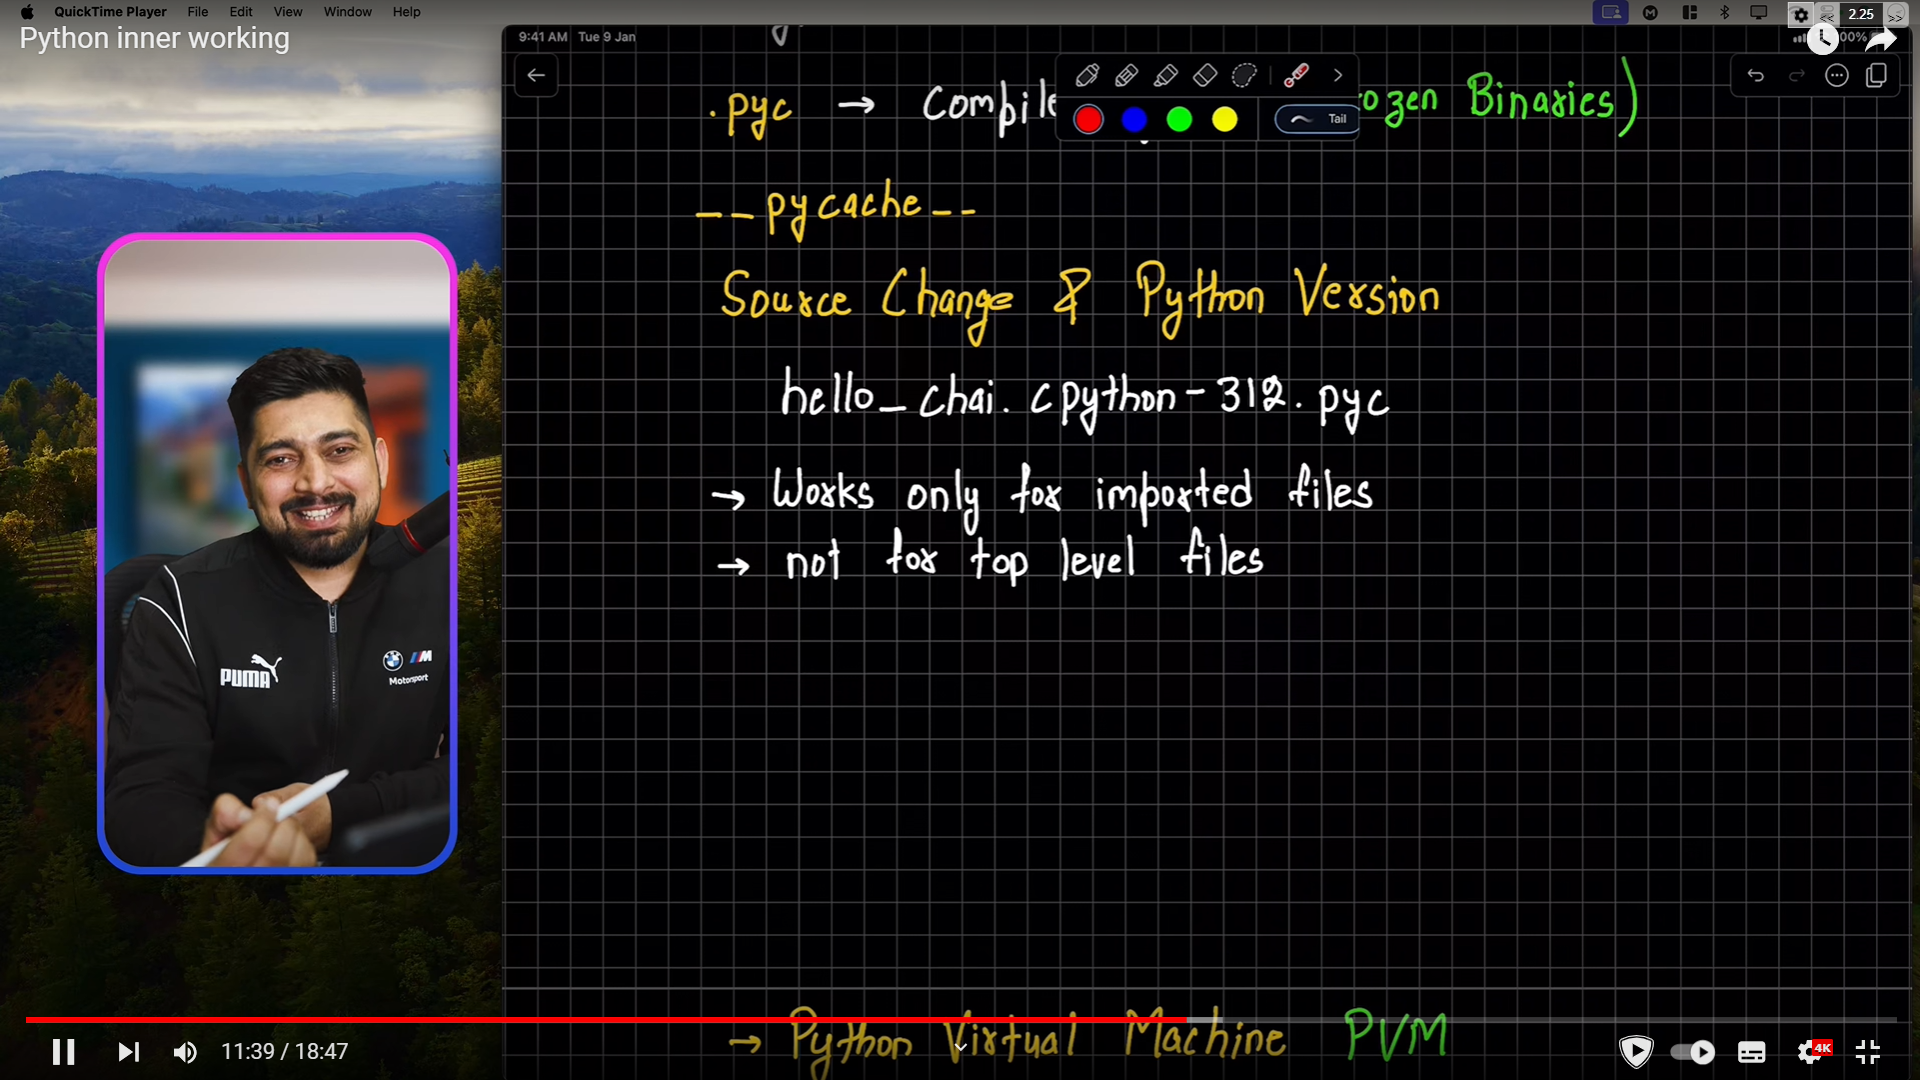 QuickTime Player File Edit View Window Help
2.25
Python inner working
9:41 AM Tue 9 Jan
00%
.pyc → Compile
ozen Binaries)
Tail
--pycache--
Source Change & Python Version
hello_chai.cpython-312.pyc
→ Works only for imported files
→ not for top level files
PUMA
M
Motorsport
→ Python Virtual Machine PVM
11:39 / 18:47
4K